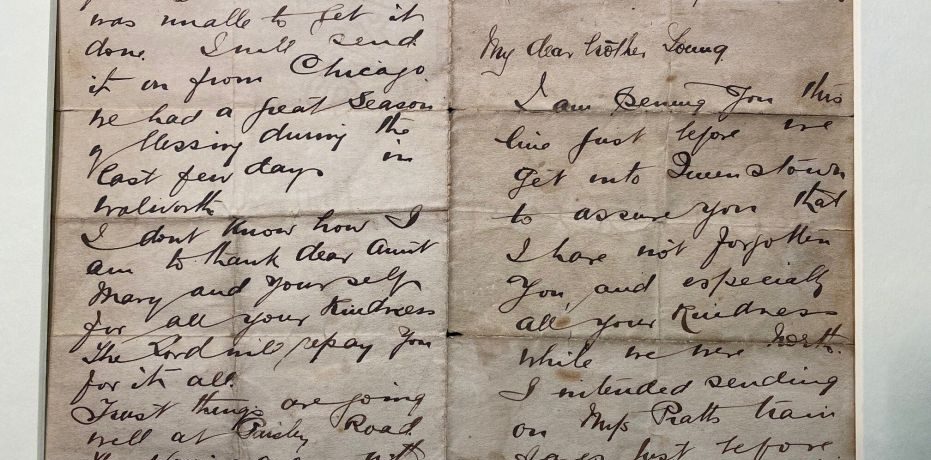 My dear brother Young
I am penning you this
line just before we
get into Queenstown
to assure you that
I have not forgotten
you, and especially
all your kindness
while we were North.
I intended sending
on Miss Pratts train
just before
was unable to get it
done. I will send
it on from Chicago.
we had a great Season
of blessing during the
last few days in
Walworth
I dont know how I
am to thank dear Aunt
Mary and yourself
for all your kindness
The Lord will repay you
for it all.
Trust things are going
well at Paisley Road.